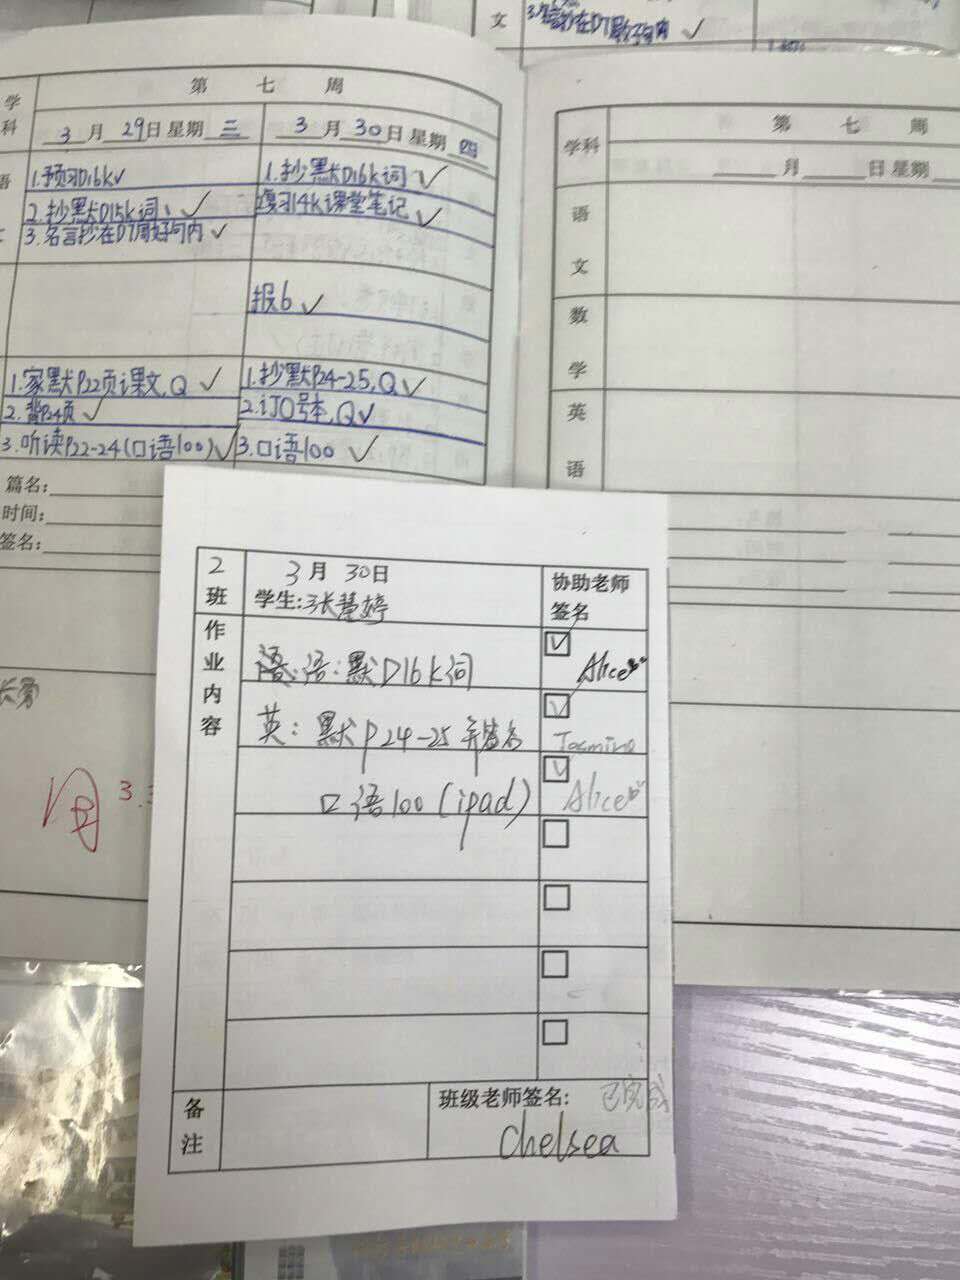 文
3.名言抄在D7周好句内 ✓
学科
第 七 周
3月29日 星期三
3月30日 星期四
语
1.预习D16k✓
2.抄默D15k词 ✓
3.名言抄在D7周好句内 ✓
1.抄默D16k词 ✓
复习14k课堂笔记 ✓
报6 ✓
1.家默P22页课文,Q ✓
2.背P24页 ✓
3.听读P22-24(口语100) ✓
1.抄默P24-25,Q ✓
2.订0号本,Q✓
3.口语100 ✓
篇名:
时间:
签名:
第 七 周
学科
月 日 星期
语
文
数
学
英
语
2班
3月30日
学生:张慧婷
协助老师签名
作业内容
语:默D16k词
Alice
英:默P24-25并签名
Jasmine
口语100(ipad)
Alice
备注
班级老师签名:
已完成
Chelsea